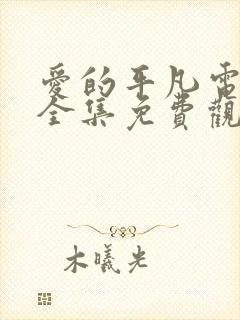 愛的平凡電
全集免費觀
木曦光